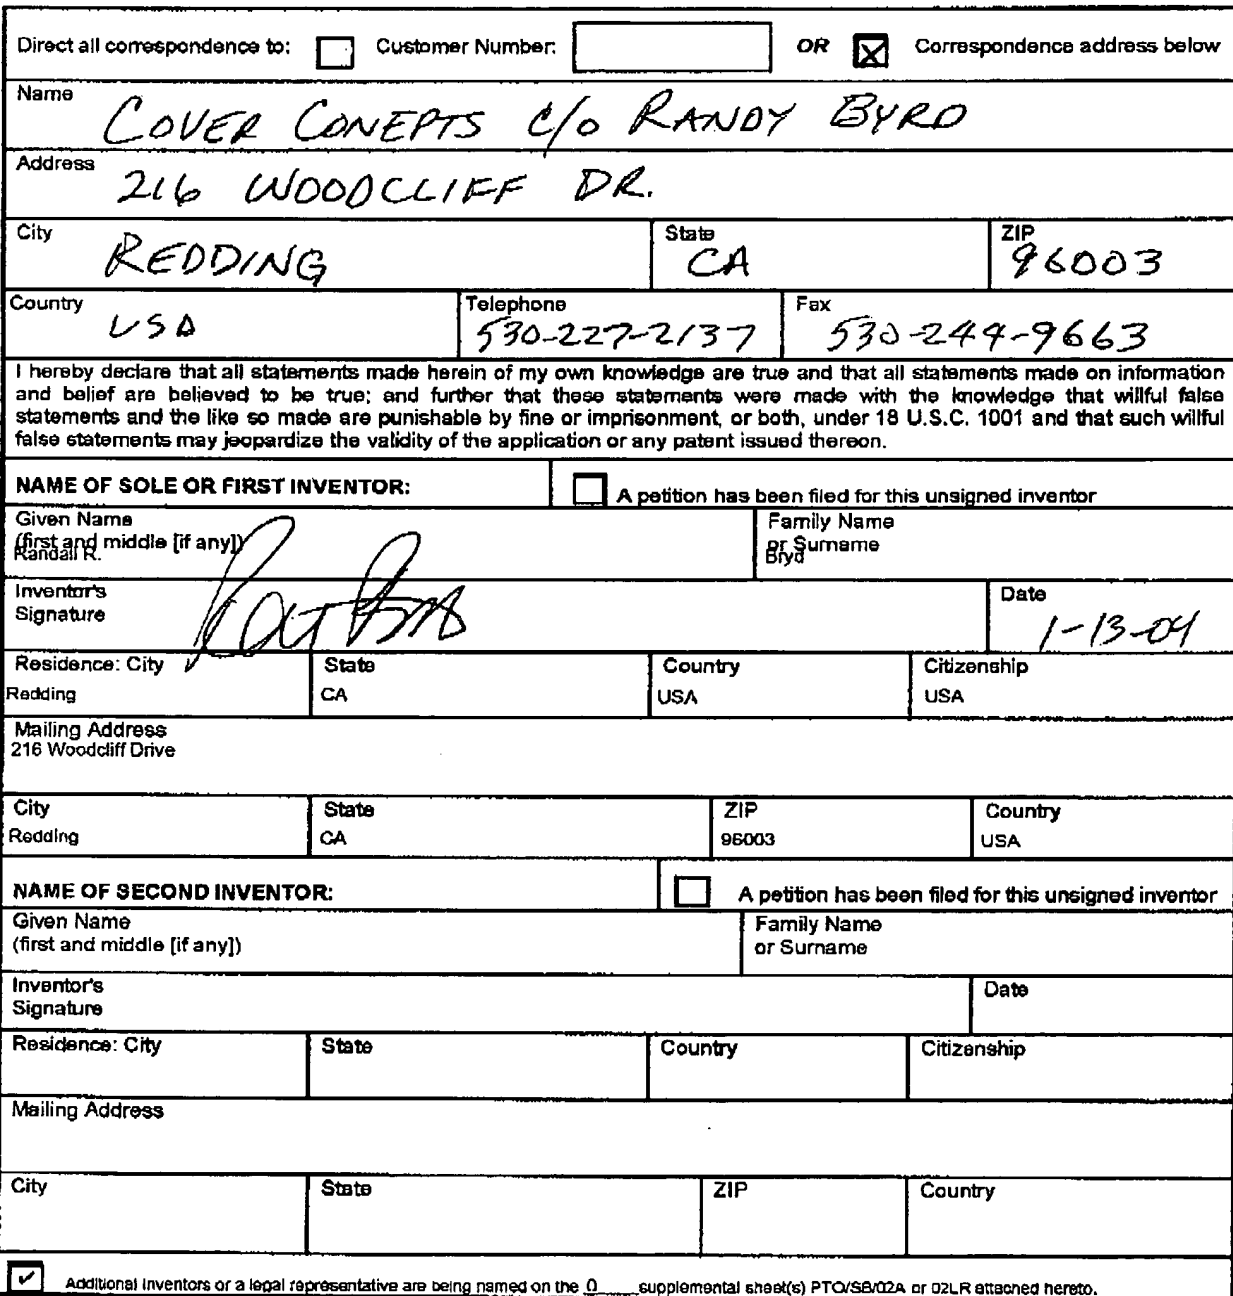 Direct all correspondence to: Customer Number: OR Correspondence address below
Name
COVER CONEPTS c/o RANDY BYRD
Address
216 WOODCLIFF DR.
City State ZIP
REDDING CA 96003
Country Telephone Fax
USA 530-227-2137 530-244-9663
I hereby declare that all statements made herein of my own knowledge are true and that all statements made on information
and belief are believed to be true; and further that these statements were made with the knowledge that willful false
statements and the like so made are punishable by fine or imprisonment, or both, under 18 U.S.C. 1001 and that such willful
false statements may jeopardize the validity of the application or any patent issued thereon.
NAME OF SOLE OR FIRST INVENTOR: A petition has been filed for this unsigned inventor
Given Name Family Name
(first and middle [if any]) or Surname
Randall R. Bryd
Inventor's Date
Signature 1-13-04
Residence: City State Country Citizenship
Redding CA USA USA
Mailing Address
216 Woodcliff Drive
City State ZIP Country
Redding CA 96003 USA
NAME OF SECOND INVENTOR: A petition has been filed for this unsigned inventor
Given Name Family Name
(first and middle [if any]) or Surname
Inventor's Date
Signature
Residence: City State Country Citizenship
Mailing Address
City State ZIP Country
Additional inventors or a legal representative are being named on the 0 supplemental sheet(s) PTO/SB/02A or 02LR attached hereto.